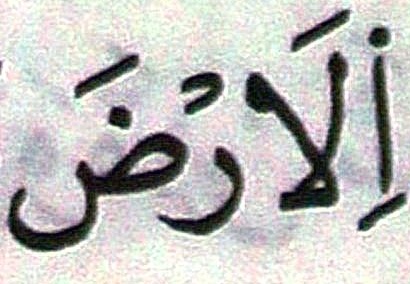 اِلَارْضَ